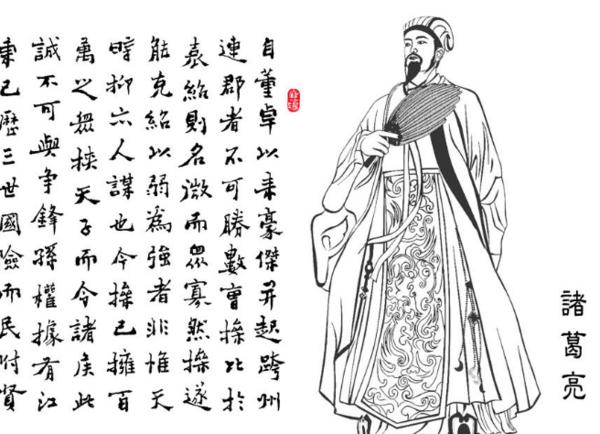 諸葛亮
自董卓以來豪傑并起跨州
連郡者不可勝數曹操比於
袁紹則名微而眾寡然操遂
能克紹以弱為強者非惟天
時抑亦人謀也今操已擁百
萬之眾挾天子而令諸侯此
誠不可與爭鋒孫權據有江
東已歷三世國險而民附賢